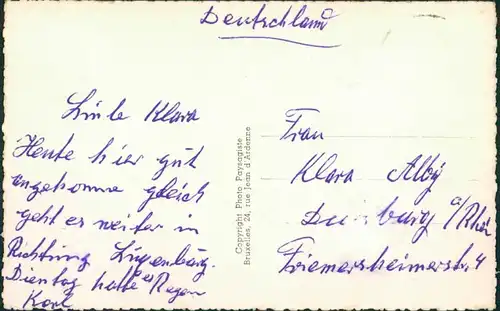 Deutschland
Liebe Klara
Heute hier gut
angekomme gleich
geht es weiter in
Richtung Luxenburg.
Dientag hatte es Regen
Karl
Copyright Photo Paysagiste
Bruxelles, 24, rue Jean d'Ardenne
Frau
Klara Alby
Duisburg a/Rhein
Friemersheimerstr. 4